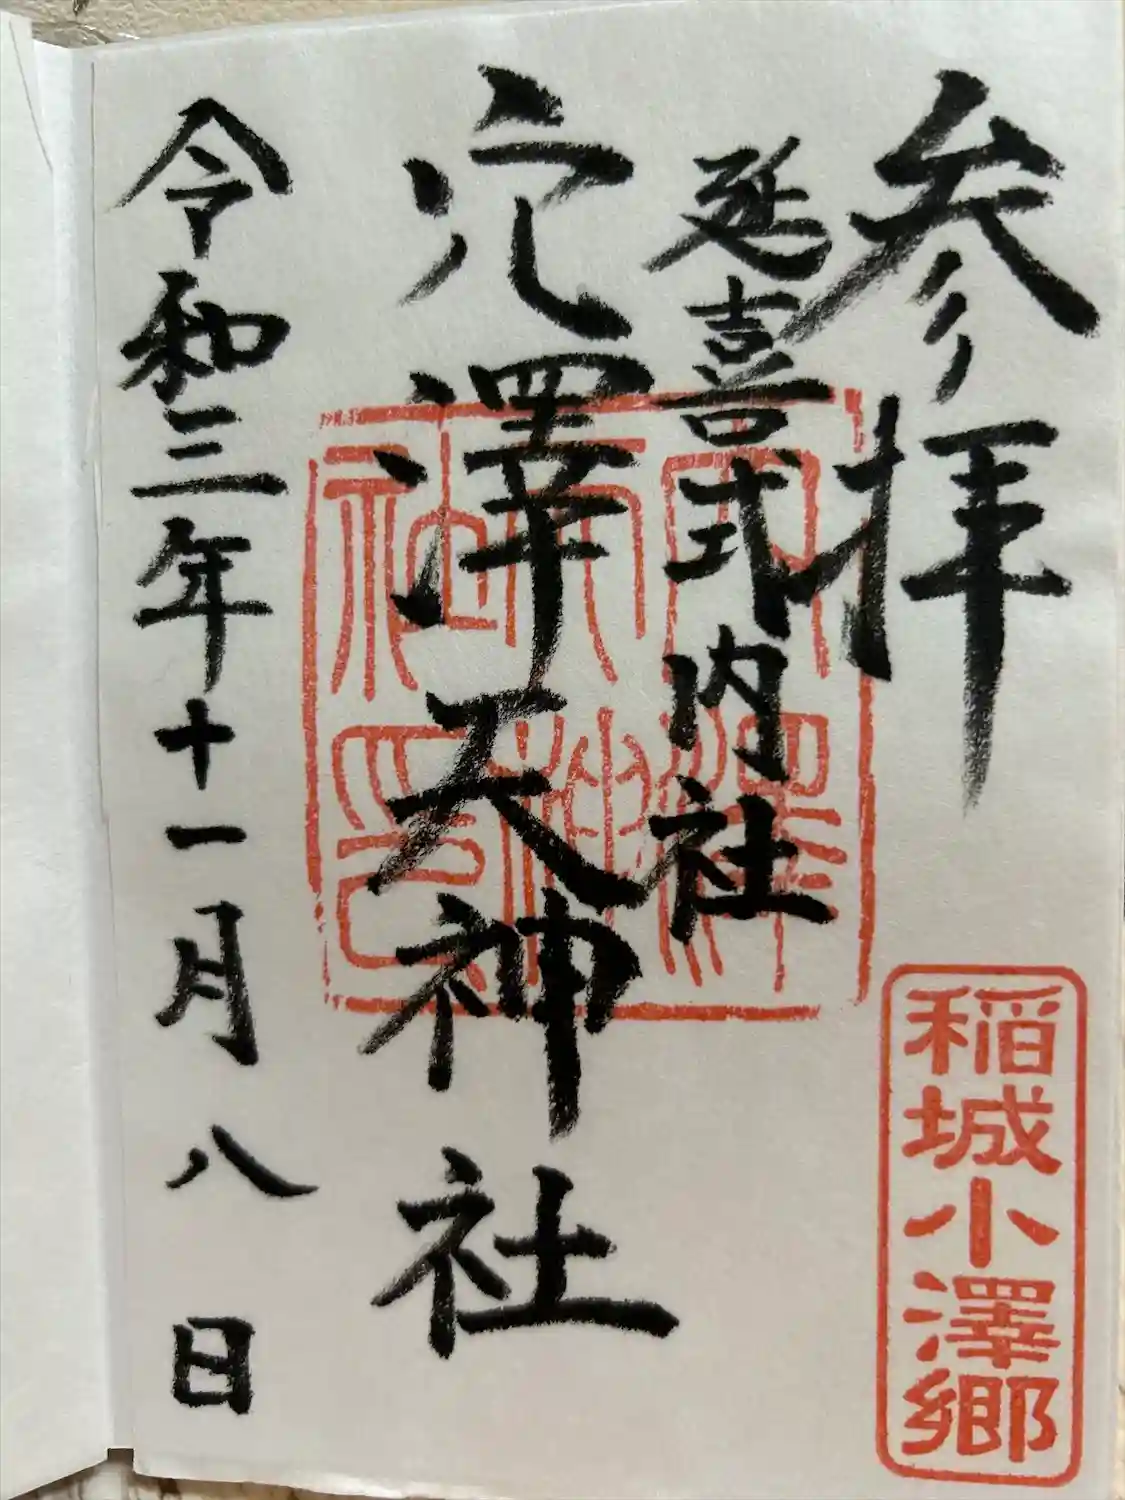 参拝
稲城小澤郷
延喜式内社
穴澤天神社
穴澤天神社印
令和三年十一月八日